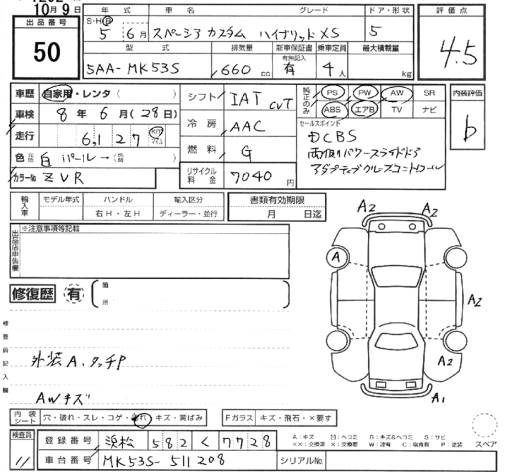 10月9日
出品番号
50
年式 車名 グレード ドア・形状
S・H・R 5年 6月 スペーシア カスタム ハイブリッドXS 5
型式 排気量 新車保証書 乗車定員 最大積載量
5AA-MK53S 660cc 有無記入 有 4人 kg
評価点
4.5
車歴 自家用・レンタ
車検 8年 6月(28日)
走行 6,127 Km マイル
色 白パール→
カラーNo ZVR
シフト IAT CVT
冷房 AAC
燃料 G
リサイクル料金 7040円
純正のみ PS PW AW SR
ABS エアB TV ナビ
セールスポイント
DCBS
両側パワースライドドア
アダプティブクルーズコントロール
内装評価
b
輸入車 モデル年式 ハンドル 輸入区分
年 右H・左H ディーラー・並行
書類有効期限
月 日迄
出品店申告欄
※注意事項等記載
修復歴 有 箇所
検査員記入欄
外装A、タッチP
AWキズ
A2 A2
A
A2
A2
A2 A1
内装シート 穴・破れ・スレ・コゲ・汚れ・キズ・黄ばみ
Fガラス キズ・飛石・×要す
検査員 11
登録番号 浜松 582 く 7728
車台番号 MK53S-511208
シリアルNo.
A:キズ U:ヘコミ B:キズ&ヘコミ S:サビ
XX:交換済 X:交換要 W:波有 C:腐食有 P:塗装
スペア